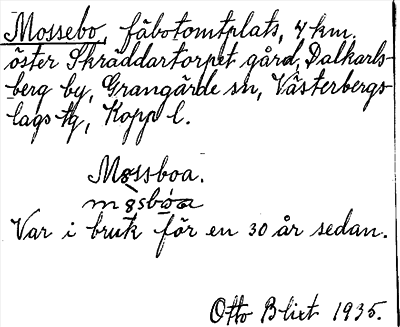 Mossebo, fäbotomtplats, 4 km.
öster Skräddartorpet gård, Dalkarls-
berg by, Grangärde sn, Västerbergs-
lags tg, Kopp l.
Måssboa.
Var i bruk för en 30 år sedan.
Otto Blixt 1935.